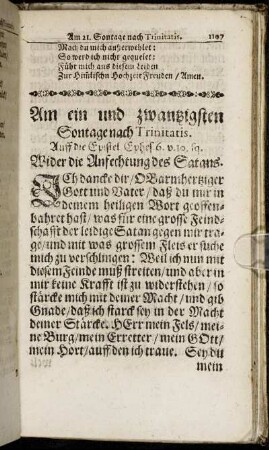 Am 21. Sontage nach Trinitatis. 1107
Mach du mich außerwehlet:
So werd ich nicht gequelet:
Führ mich aus diesem Leiden
Zur Him̃lischn Hochzeit Freuden / Amen.
Am ein und zwantzigsten
Sontage nach Trinitatis.
Auff die Epistel Ephes 6. v. 10. sq.
Wider die Anfechtung des Satans.
ICh dancke dir / O Barmhertziger
Gott und Vater / daß du mir in
deinem heiligen Wort geoffen-
bahret hast / was für eine grosse Feind-
schafft der leidige Satan gegen mir tra-
ge / und mit was grossem Fleis er suche
mich zu verschlingen: Weil ich nun mit
diesem Feinde muß streiten / und aber in
mir keine Krafft ist zu widerstehen / so
stärcke mich mit deiner Macht / und gib
Gnade / daß ich starck sey in der Macht
deiner Stärcke. HErr mein Fels / mei-
ne Burg / mein Erretter / mein GOtt /
mein Hort / auff den ich traue. Sey du
mein